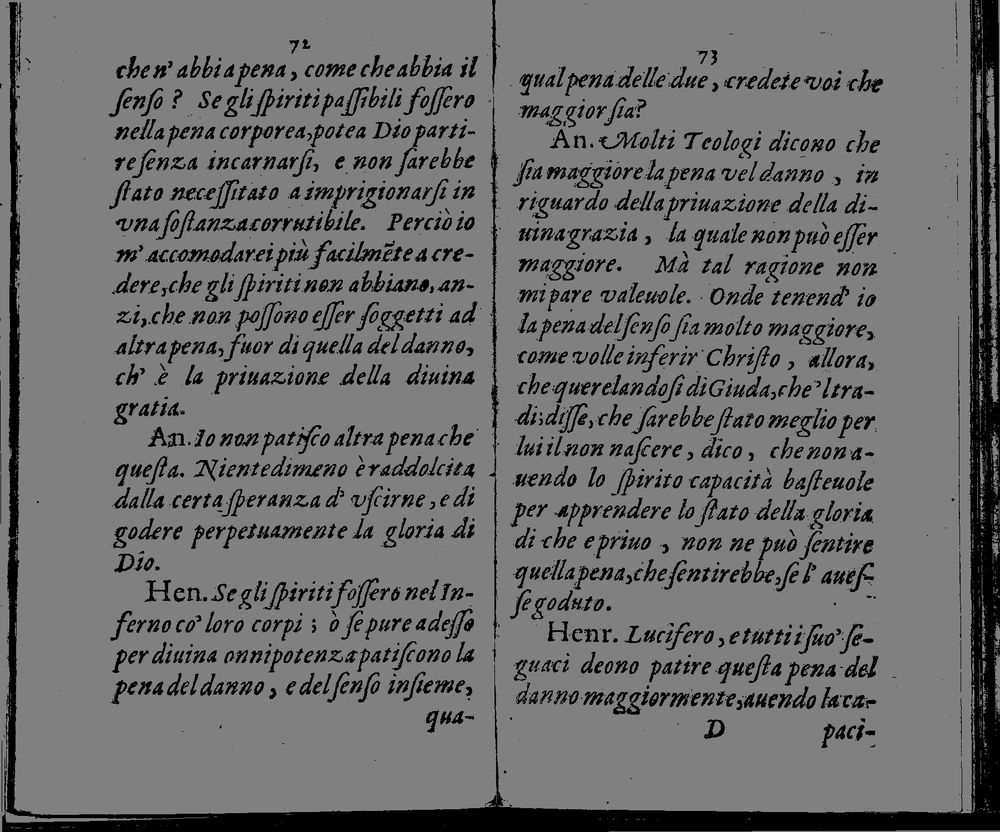 72
che n' abbia pena, come che abbia il
ſenſo? Se gli ſpiriti paſſibili foſſero
nella pena corporea, potea Dio parti-
re ſenza incarnarſi, e non ſarebbe
ſtato neceſſitato a imprigionarſi in
vna ſoſtanza corrutibile. Perciò io
m' accomodarei più facilmẽte a cre-
dere, che gli ſpiriti non abbiano, an-
zi, che non poſſono eſſer ſoggetti ad
altra pena, fuor di quella del danno,
ch' è la priuazione della diuina
gratia.
An. Io non patiſco altra pena che
queſta. Nientedimeno è raddolcita
dalla certa ſperanza d' vſcirne, e di
godere perpetuamente la gloria di
Dio.
Hen. Se gli ſpiriti foſſero nel In-
ferno co' loro corpi; ò ſe pure adeſſo
per diuina onnipotenza patiſcono la
pena del danno, e del ſenſo inſieme,
qua-
73
qual pena delle due, credete voi che
maggior ſia?
An. Molti Teologi dicono che
ſia maggiore la pena vel danno, in
riguardo della priuazione della di-
uina grazia, la quale non può eſſer
maggiore. Mà tal ragione non
mi pare valeuole. Onde tenend' io
la pena del ſenſo ſia molto maggiore,
come volle inferir Chriſto, allora,
che querelandoſi di Giuda, che 'l tra-
dì; diſſe, che ſarebbe ſtato meglio per
lui il non naſcere, dico, che non a-
uendo lo ſpirito capacità baſteuole
per apprendere lo ſtato della gloria
di che e priuo, non ne può ſentire
quella pena, che ſentirebbe, ſe l' aueſ-
ſe goduto.
Henr. Lucifero, e tutti i ſuo' ſe-
guaci deono patire queſta pena del
danno maggiormente, auendo la ca-
D paci-